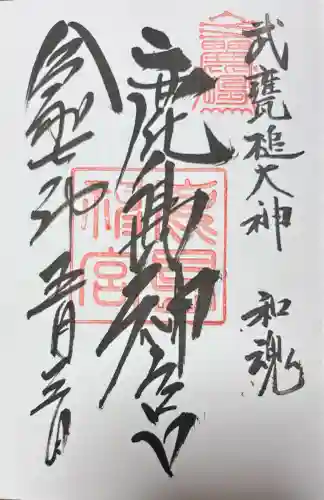 武甕槌大神 和魂
鹿島神宮
令和七年 五月三日
鹿島神宮